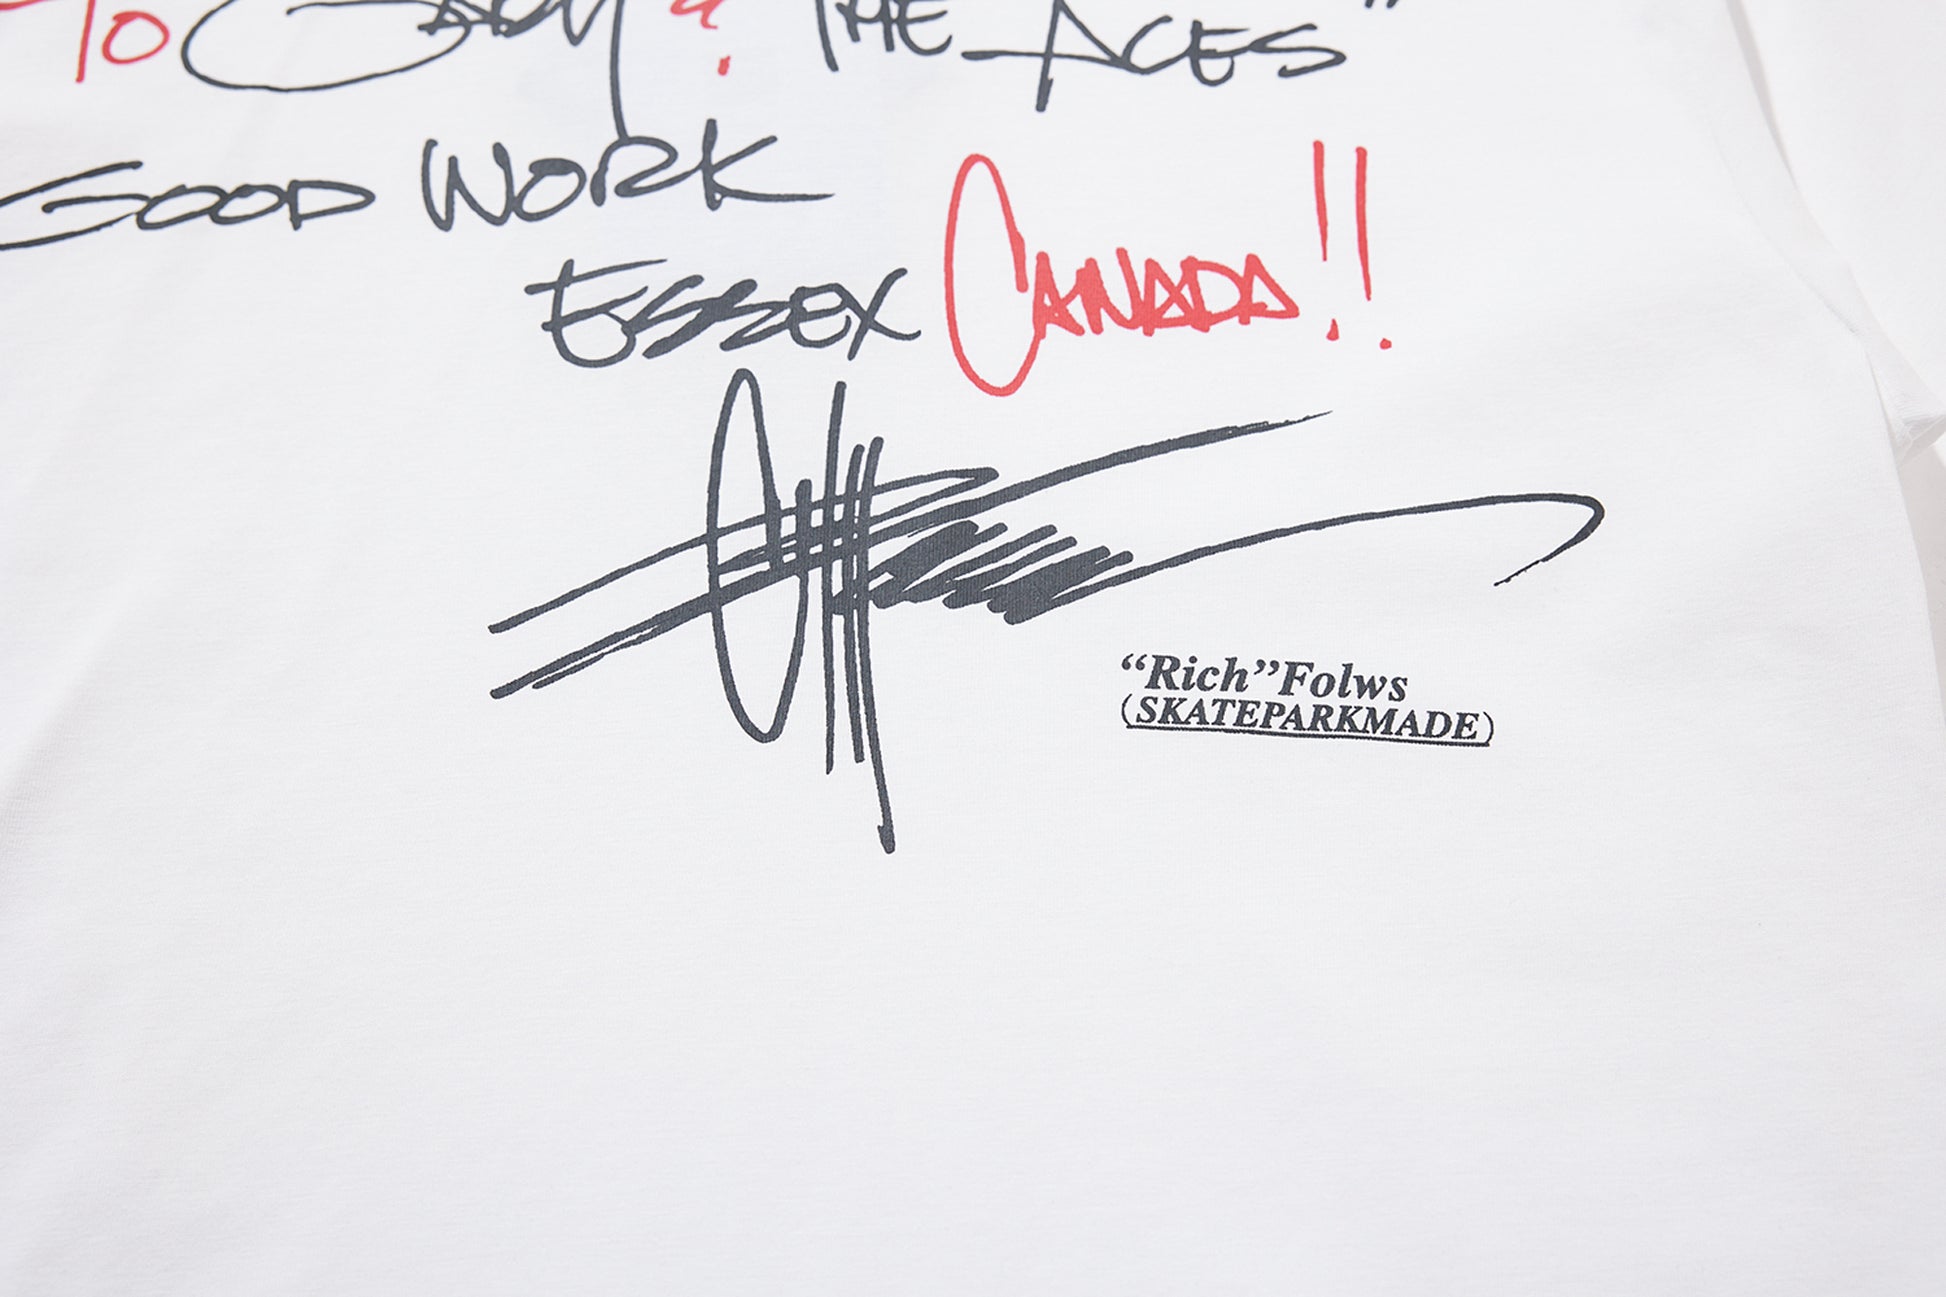 TO GARY & THE ACES"
GOOD WORK
ESSEX CANADA!!
“Rich”Folws
(SKATEPARKMADE)